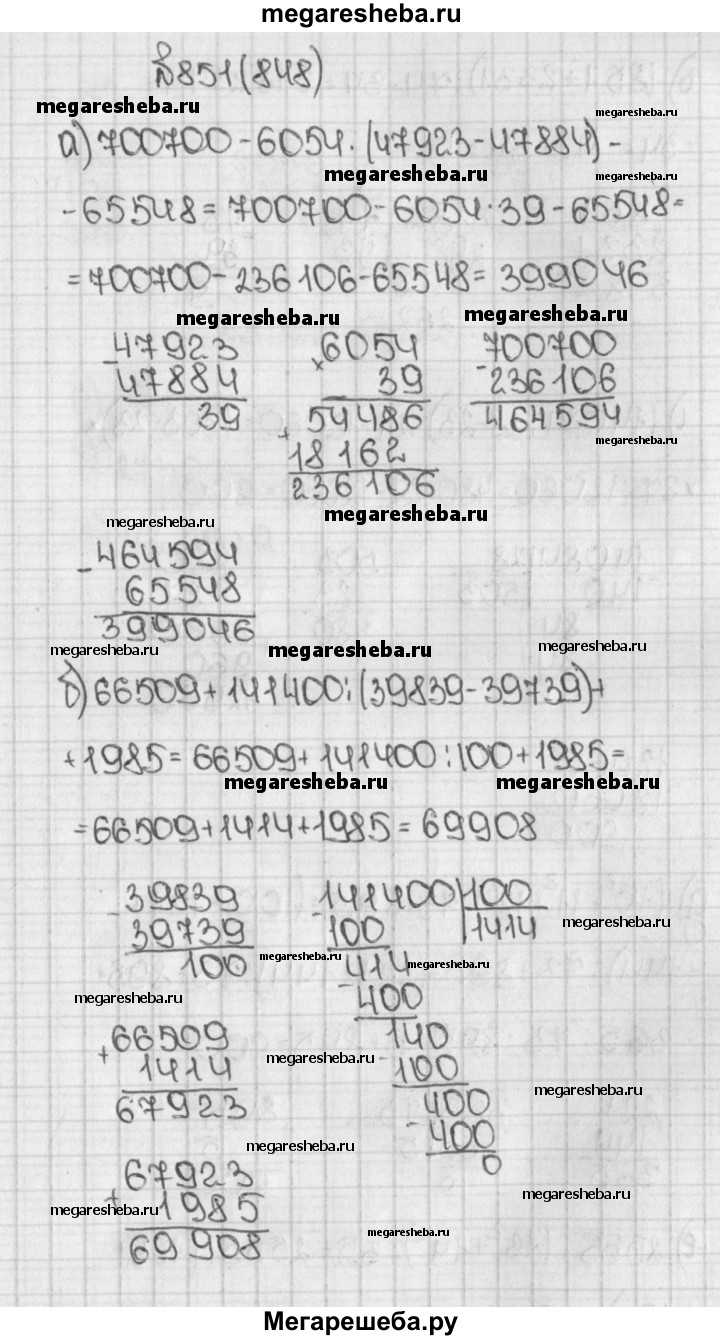 megaresheba.ru
№851(848)
megaresheba.ru
megaresheba.ru
а) 700700-6054·(47923-47884)-
megaresheba.ru
megaresheba.ru
-65548=700700-6054·39-65548=
=700700-236106-65548=399046
megaresheba.ru
megaresheba.ru
-47923 ×6054 -700700
47884 39 236106
39 +54486 464594
megaresheba.ru
18162
236106
megaresheba.ru
megaresheba.ru
-464594
65548
399046
megaresheba.ru
megaresheba.ru
megaresheba.ru
б) 66509+141400:(39839-39739)+
+1985=66509+141400:100+1985=
megaresheba.ru
megaresheba.ru
=66509+1414+1985=69908
-39839 -141400|100
39739 100 |1414
megaresheba.ru
100 414
megaresheba.ru
megaresheba.ru
megaresheba.ru
-400
+66509 140
1414 -100
megaresheba.ru
67923 400
megaresheba.ru
-400
megaresheba.ru
0
+67923
1985
megaresheba.ru
megaresheba.ru
69908
megaresheba.ru
Мегарешеба.ру